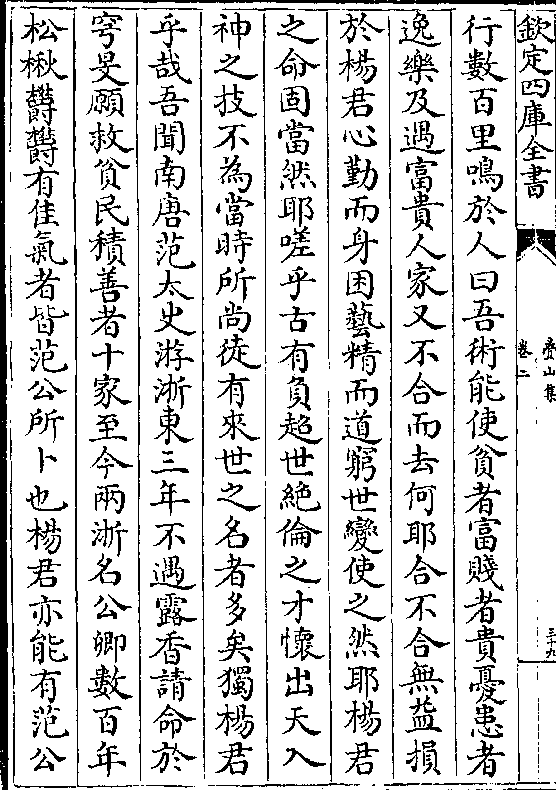 欽定四庫全書
疊山集
卷二
三十九
行數百里鳴於人曰吾術能使貧者富賤者貴憂患者
逸樂及遇富貴人家又不合而去何耶合不合無益損
於楊君心勤而身困藝精而道窮世變使之然耶楊君
之命固當然耶嗟乎古有負超世絶倫之才懷出天入
神之技不為當時所尚徒有來世之名者多矣獨楊君
乎哉吾聞南唐范太史游浙東三年不遇露香請命於
穹旻願救貧民積善者十家至今兩浙名公卿數百年
松楸欝欝有佳氣者皆范公所卜也楊君亦能有范公